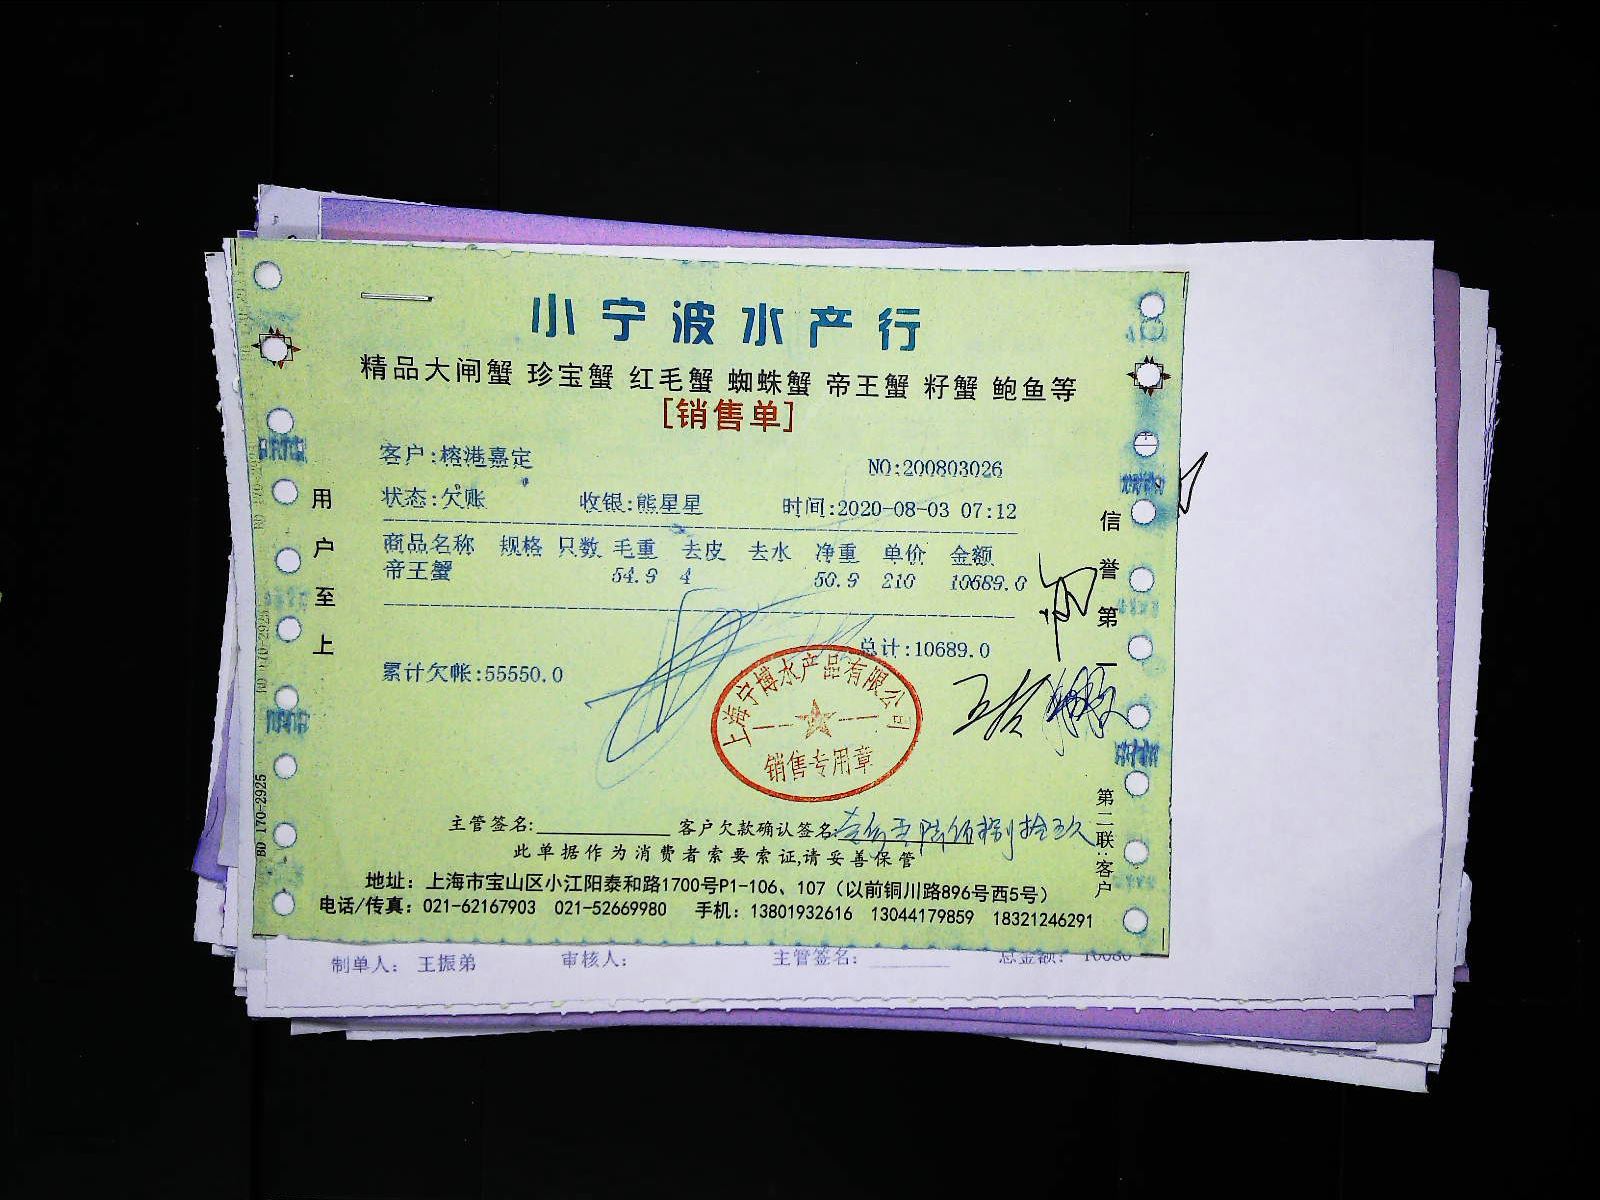 小宁波水产行
精品大闸蟹 珍宝蟹 红毛蟹 蜘蛛蟹 帝王蟹 籽蟹 鲍鱼等
[销售单]
客户:榕港嘉定 NO:200803026
状态:欠账 收银:熊星星 时间:2020-08-03 07:12
商品名称 规格 只数 毛重 去皮 去水 净重 单价 金额
帝王蟹 54.9 4 50.9 210 10689.0
总计:10689.0
累计欠帐:55550.0
上海宁博水产品有限公司
销售专用章
用户至上
信誉第一
第二联:客户
BD 170-2925
主管签名: 客户欠款确认签名:
此单据作为消费者索要索证,请妥善保管
地址：上海市宝山区小江阳泰和路1700号P1-106、107（以前铜川路896号西5号）
电话/传真：021-62167903 021-52669980 手机：13801932616 13044179859 18321246291
制单人： 王振弟 审核人： 主管签名： 总金额：